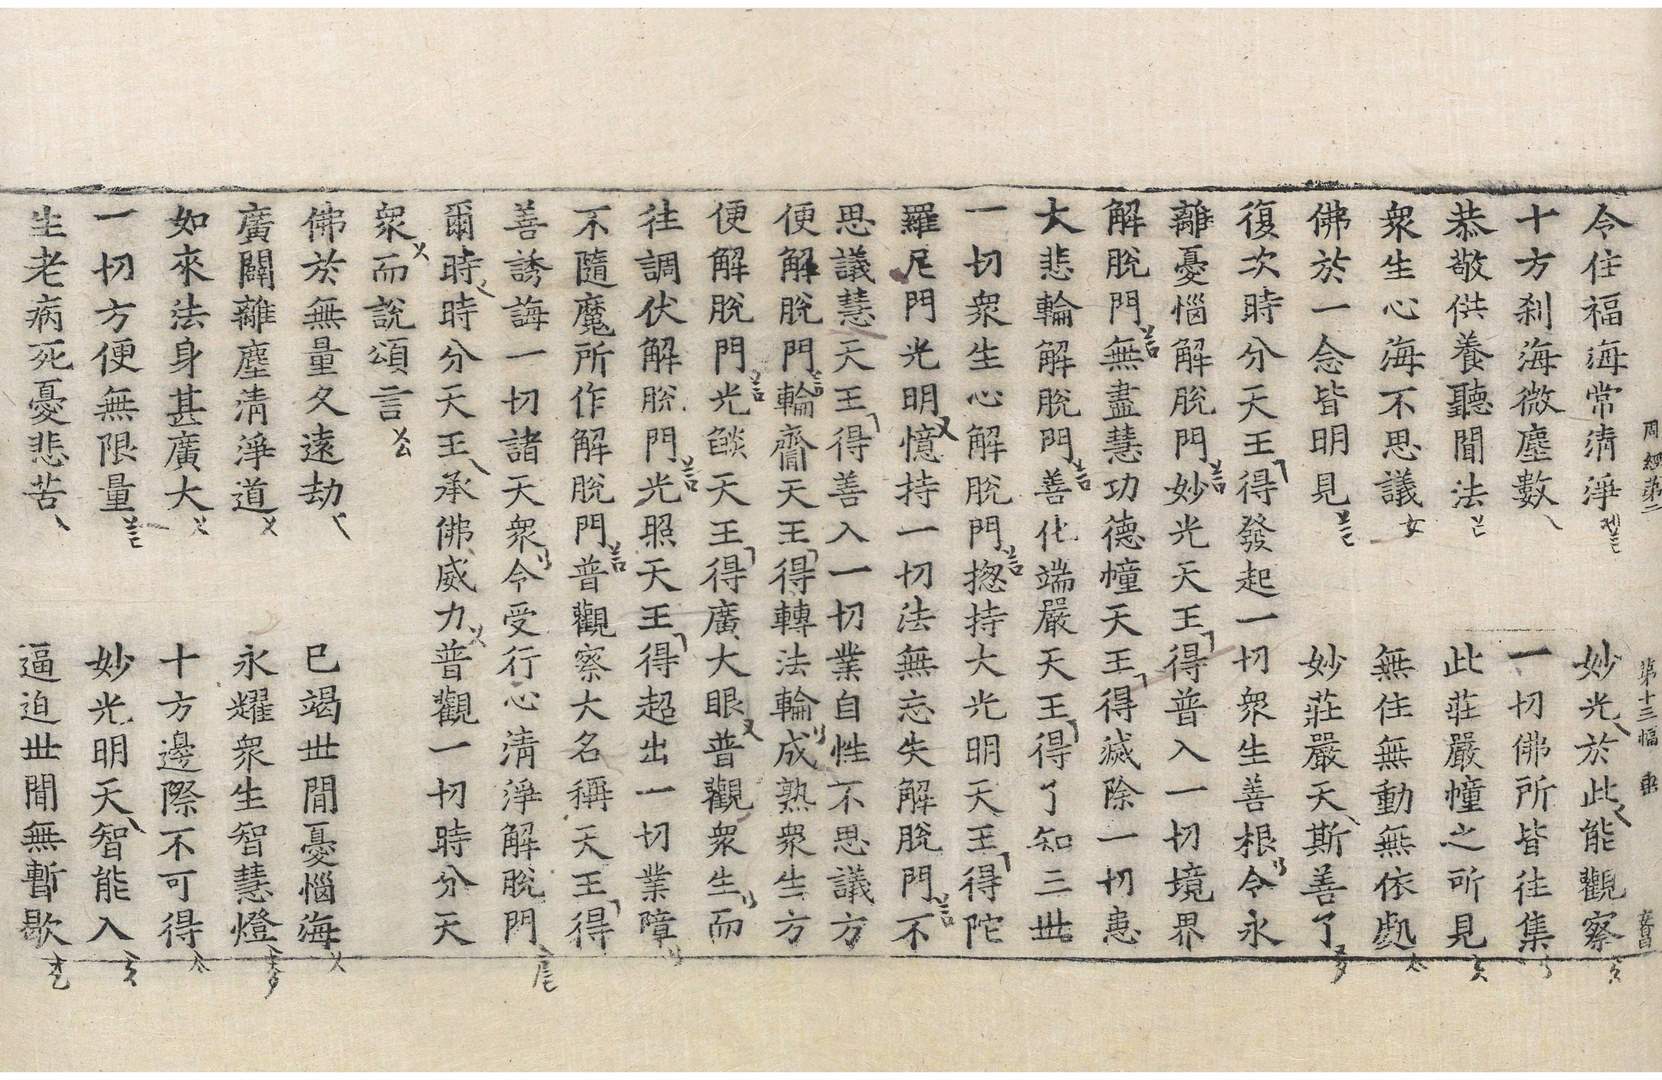 周經第二 第十三幅
令住福海常清淨 妙光於此能觀察
十方刹海微塵數 一切佛所皆往集
恭敬供養聽聞法 此莊嚴幢之所見
衆生心海不思議 無住無動無依處
佛於一念皆明見 妙莊嚴天斯善了
復次時分天王得發起一切衆生善根令永
離憂惱解脫門妙光天王得普入一切境界
解脫門無盡慧功德幢天王得滅除一切患
大悲輪解脫門善化端嚴天王得了知三世
一切衆生心解脫門揔持大光明天王得陀
羅尼門光明憶持一切法無忘失解脫門不
思議慧天王得善入一切業自性不思議方
便解脫門輪齎天王得轉法輪成熟衆生方
便解脫門光燄天王得廣大眼普觀衆生而
往調伏解脫門光照天王得超出一切業障
不隨魔所作解脫門普觀察大名稱天王得
善誘誨一切諸天衆令受行心清淨解脫門
爾時時分天王承佛威力普觀一切時分天
衆而說頌言
佛於無量久遠劫 已竭世間憂惱海
廣闢離塵清淨道 永耀衆生智慧燈
如來法身甚廣大 十方邊際不可得
一切方便無限量 妙光明天智能入
生老病死憂悲苦 逼迫世間無暫歇